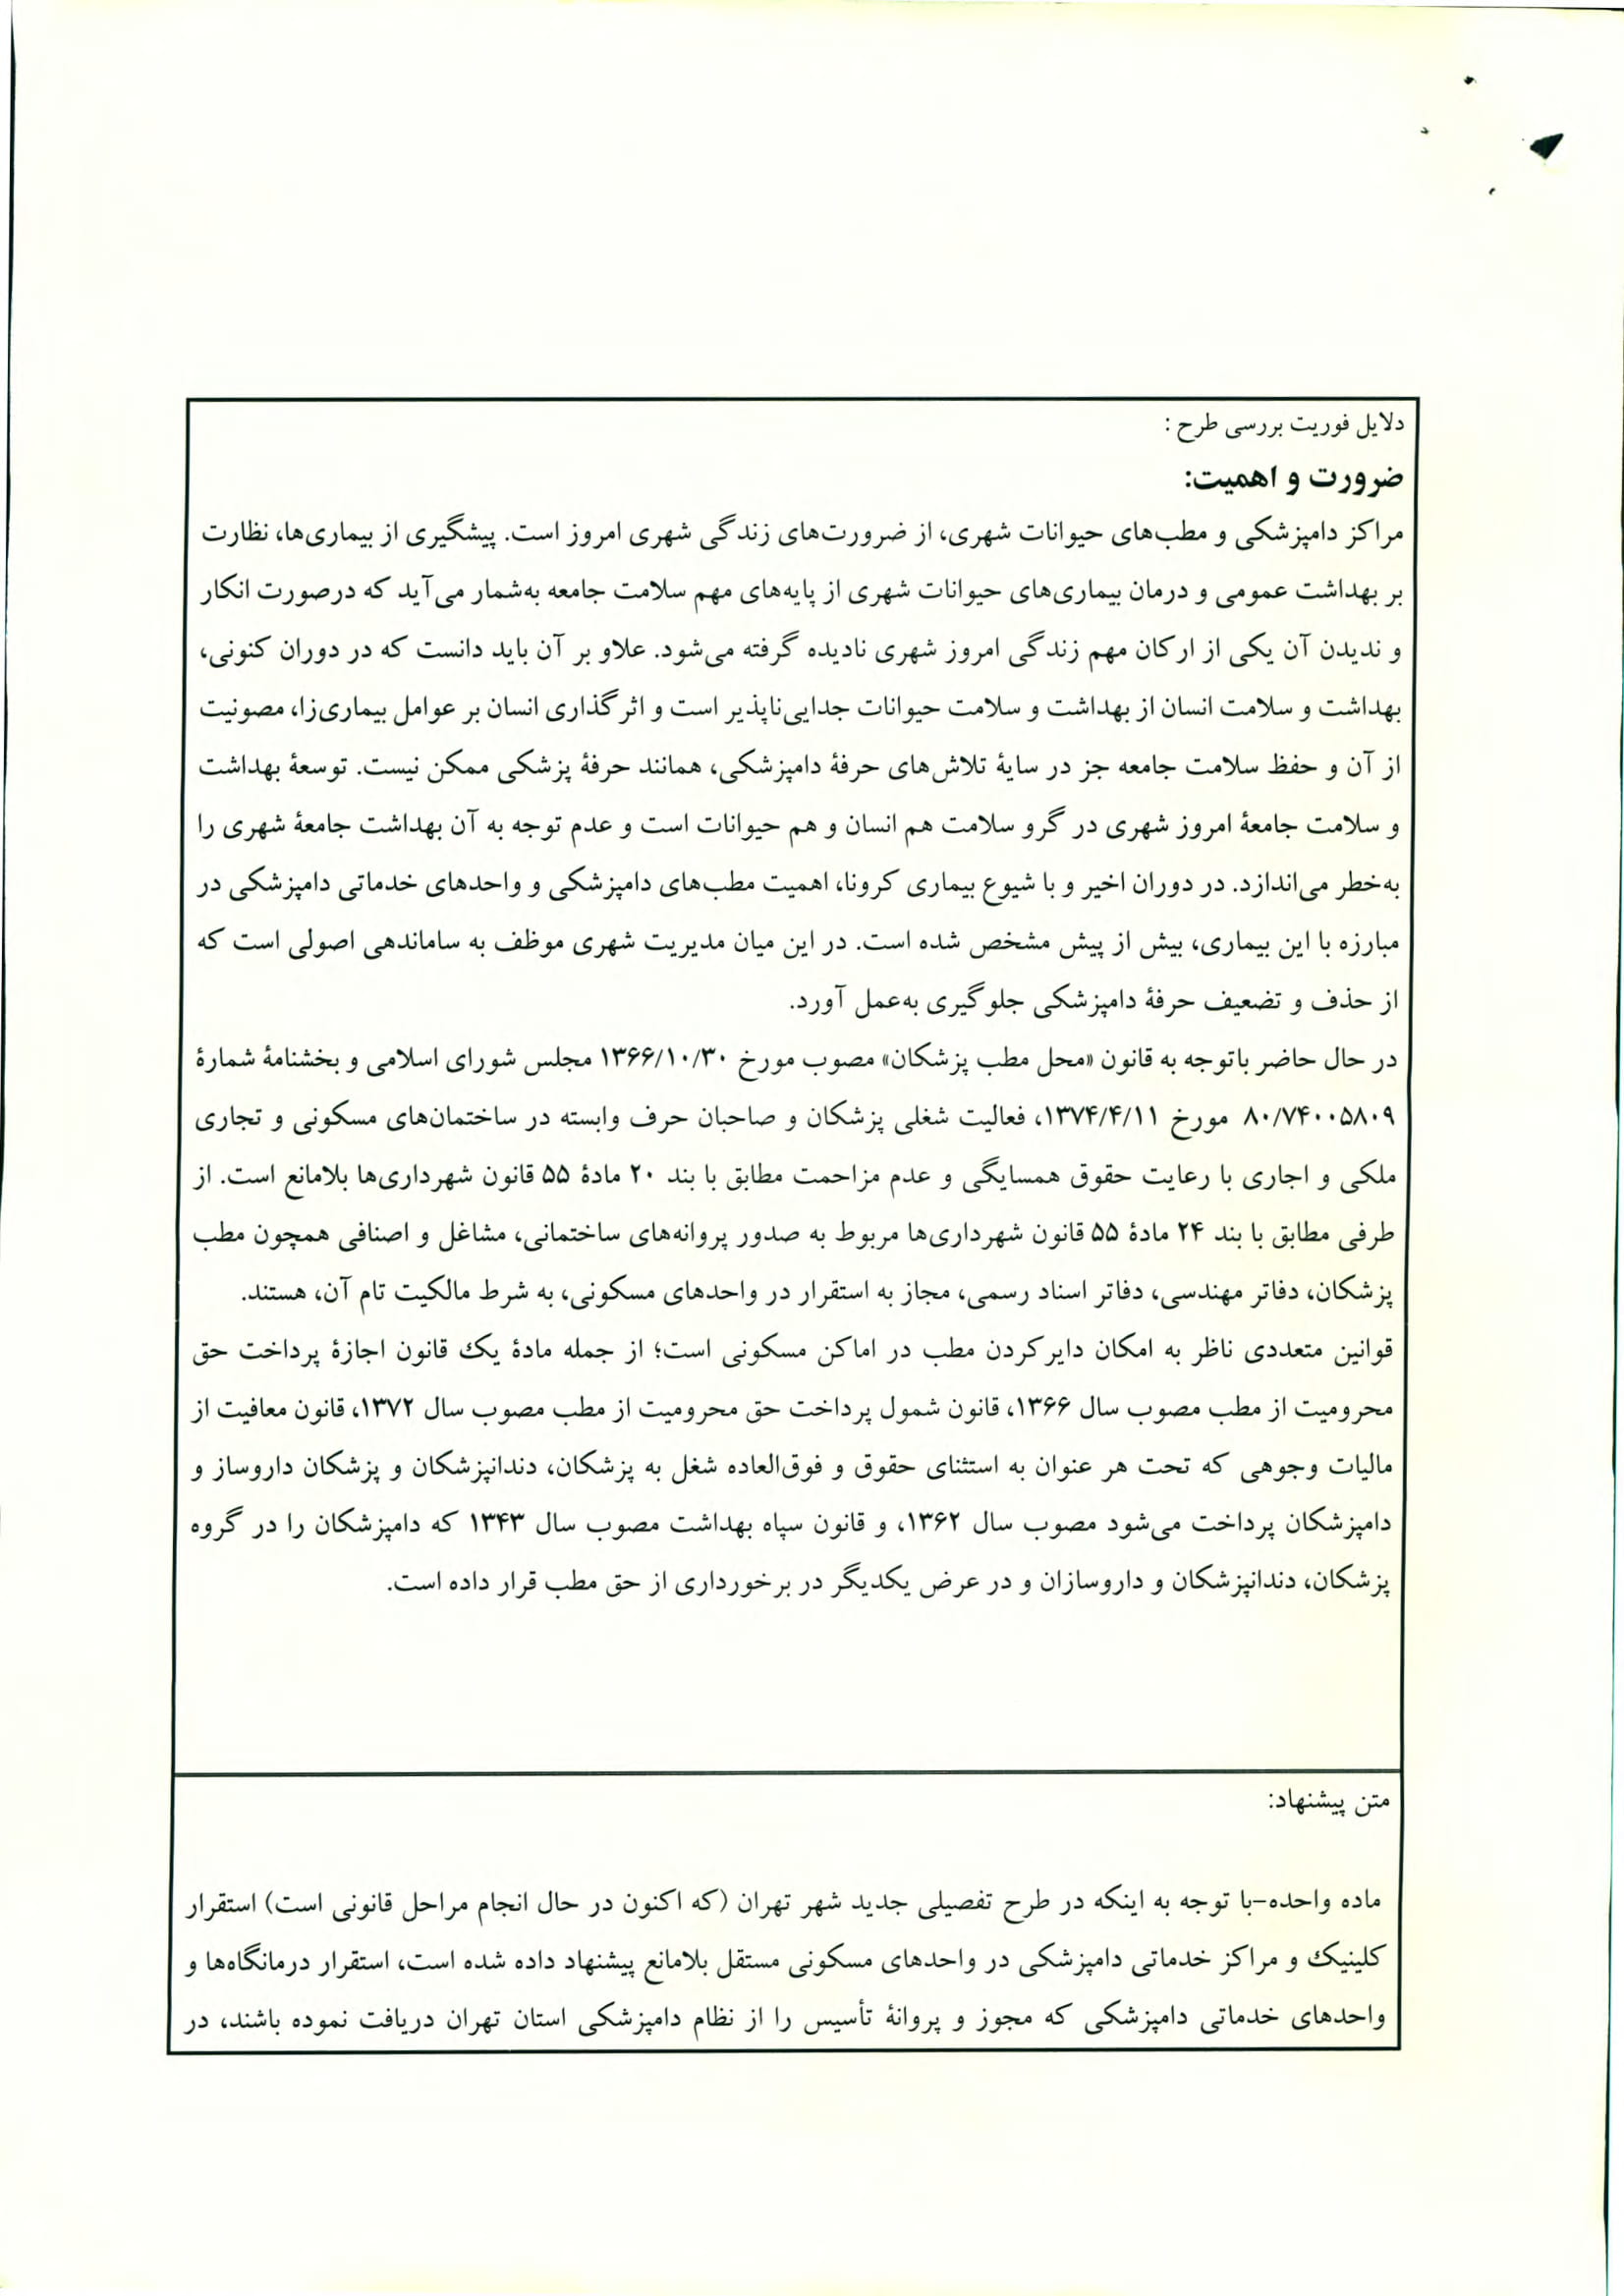 دلایل فوریت بررسی طرح :
ضرورت و اهمیت:
مراکز دامپزشکی و مطب‌های حیوانات شهری، از ضرورت‌های زندگی شهری امروز است. پیشگیری از بیماری‌ها، نظارت
بر بهداشت عمومی و درمان بیماری‌های حیوانات شهری از پایه‌های مهم سلامت جامعه به‌شمار می‌آید که درصورت انکار
و ندیدن آن یکی از ارکان مهم زندگی امروز شهری نادیده گرفته می‌شود. علاو بر آن باید دانست که در دوران کنونی،
بهداشت و سلامت انسان از بهداشت و سلامت حیوانات جدایی‌ناپذیر است و اثرگذاری انسان بر عوامل بیماری‌زا، مصونیت
از آن و حفظ سلامت جامعه جز در سایۀ تلاش‌های حرفۀ دامپزشکی، همانند حرفۀ پزشکی ممکن نیست. توسعۀ بهداشت
و سلامت جامعۀ امروز شهری در گرو سلامت هم انسان و هم حیوانات است و عدم توجه به آن بهداشت جامعۀ شهری را
به‌خطر می‌اندازد. در دوران اخیر و با شیوع بیماری کرونا، اهمیت مطب‌های دامپزشکی و واحدهای خدماتی دامپزشکی در
مبارزه با این بیماری، بیش از پیش مشخص شده است. در این میان مدیریت شهری موظف به ساماندهی اصولی است که
از حذف و تضعیف حرفۀ دامپزشکی جلوگیری به‌عمل آورد.
در حال حاضر باتوجه به قانون «محل مطب پزشکان» مصوب مورخ ۱۳۶۶/۱۰/۳۰ مجلس شورای اسلامی و بخشنامۀ شمارۀ
۸۰/۷۴۰۰۵۸۰۹ مورخ ۱۳۷۴/۴/۱۱، فعالیت شغلی پزشکان و صاحبان حرف وابسته در ساختمان‌های مسکونی و تجاری
ملکی و اجاری با رعایت حقوق همسایگی و عدم مزاحمت مطابق با بند ۲۰ مادۀ ۵۵ قانون شهرداری‌ها بلامانع است. از
طرفی مطابق با بند ۲۴ مادۀ ۵۵ قانون شهرداری‌ها مربوط به صدور پروانه‌های ساختمانی، مشاغل و اصنافی همچون مطب
پزشکان، دفاتر مهندسی، دفاتر اسناد رسمی، مجاز به استقرار در واحدهای مسکونی، به شرط مالکیت تام آن، هستند.
قوانین متعددی ناظر به امکان دایرکردن مطب در اماکن مسکونی است؛ از جمله مادۀ یک قانون اجازۀ پرداخت حق
محرومیت از مطب مصوب سال ۱۳۶۶، قانون شمول پرداخت حق محرومیت از مطب مصوب سال ۱۳۷۲، قانون معافیت از
مالیات وجوهی که تحت هر عنوان به استثنای حقوق و فوق‌العاده شغل به پزشکان، دندانپزشکان و پزشکان داروساز و
دامپزشکان پرداخت می‌شود مصوب سال ۱۳۶۲، و قانون سپاه بهداشت مصوب سال ۱۳۴۳ که دامپزشکان را در گروه
پزشکان، دندانپزشکان و داروسازان و در عرض یکدیگر در برخورداری از حق مطب قرار داده است.
متن پیشنهاد:
ماده واحده-با توجه به اینکه در طرح تفصیلی جدید شهر تهران (که اکنون در حال انجام مراحل قانونی است) استقرار
کلینیک و مراکز خدماتی دامپزشکی در واحدهای مسکونی مستقل بلامانع پیشنهاد داده شده است، استقرار درمانگاه‌ها و
واحدهای خدماتی دامپزشکی که مجوز و پروانۀ تأسیس را از نظام دامپزشکی استان تهران دریافت نموده باشند، در